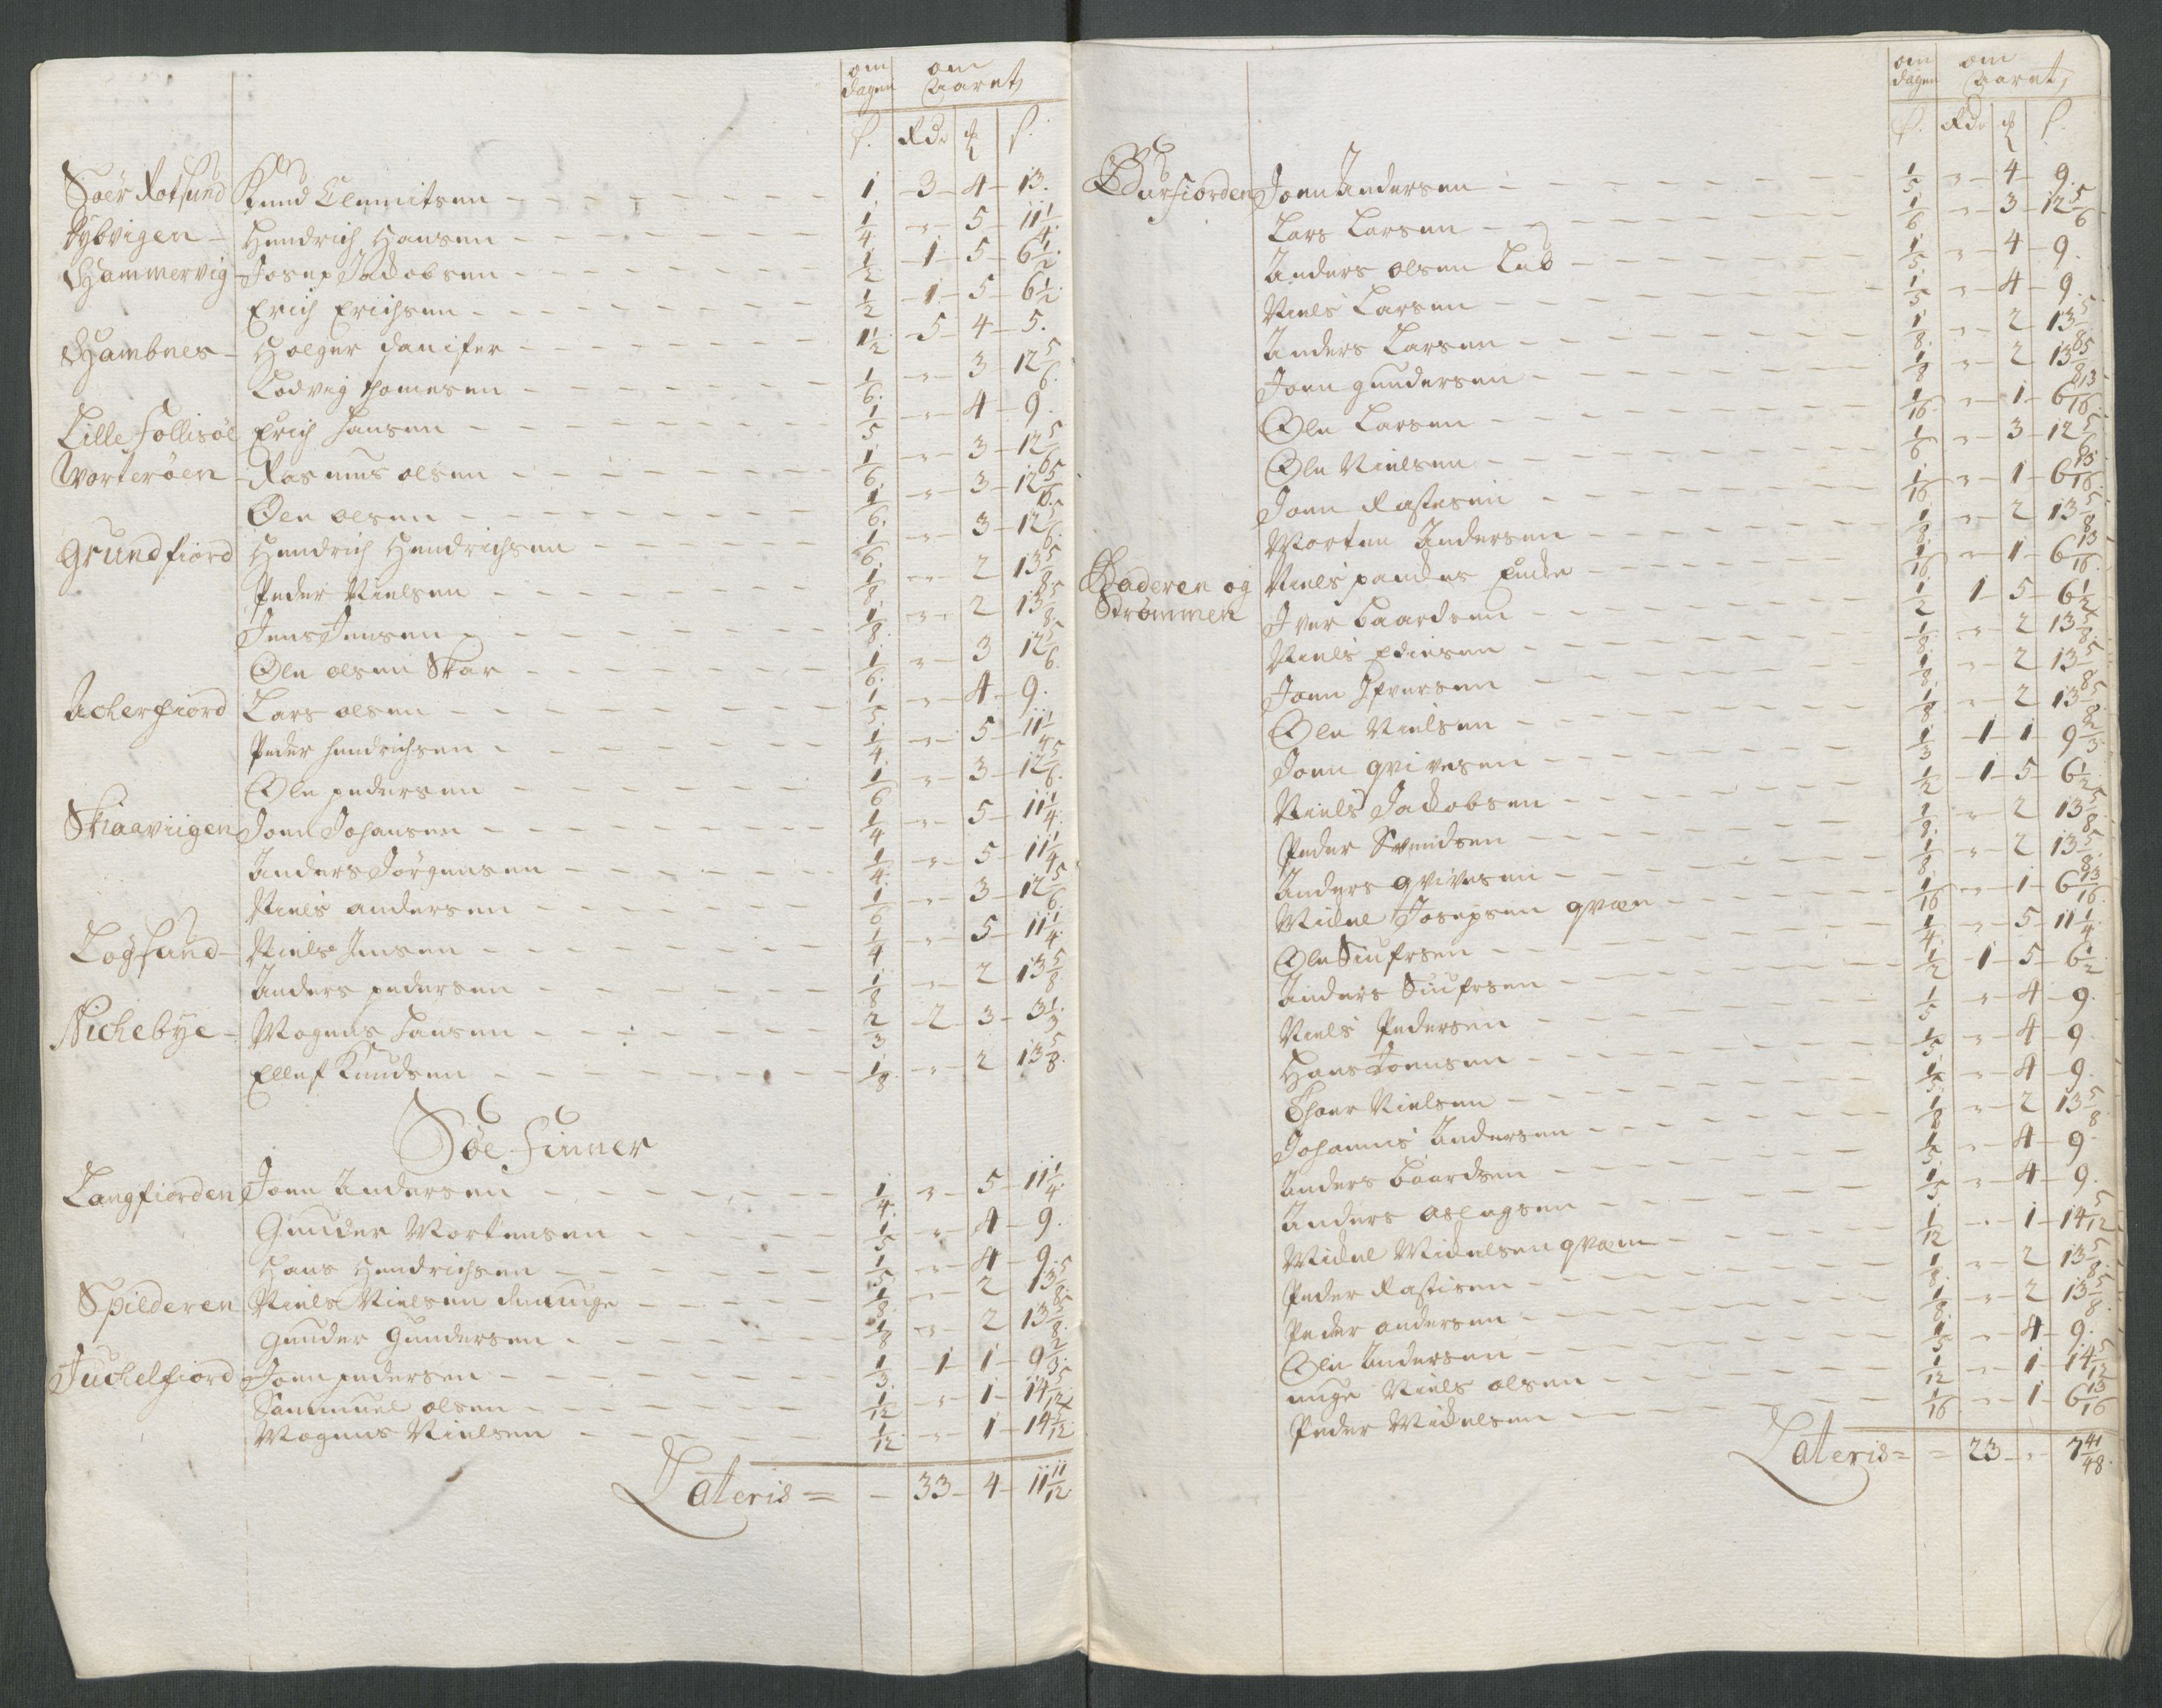 om om
dagen Aaret
ß. Rdr ß.
Soer Rotsund Knud Clemmitsen 1 3 4 13.
Dybvigen Hendrich Hansen 1/4 " 5 11 1/4
Hammervig Josep Jackobsen 1/2 1 5 6 1/2
Erich Erichsen 1/2 1 5 6 1/2
Hambnes Holger danifer 1 1/2 5 4 5.
Lodvig thomesen 1/6 " 3 12 5/6
Lille Follisöe Erich Hansen 1/5 " 4 9.
Worteröen Rasmus olsen 1/6 " 3 12 5/6
Ole olsen 1/6 " 3 12 5/6
Grundfiord Hendrich Hendrichsen 1/6 " 3 12 5/6
Peder Nielsen 1/8 " 2 13 5/8
Jens Jensen 1/8 " 2 13 5/8
Ole olsen Skar 1/6 " 3 12 5/6
Acherfiord Lars olsen 1/5 " 4 9.
Peder hendrichsen 1/4 " 5 11 1/4
Ole pedersen 1/6 " 3 12 5/6
Skaaviigen Joen Johansen 1/4 " 5 11 1/4
Anders Jörgensen 1/4 " 5 11 1/4
Niels andersen 1/6 " 3 12 5/6
Logsund Niels Jensen 1/4 " 5 11 1/4
Anders pedersen 1/8 " 2 13 5/8
Nichebye Mogens Hansen 2/3 2 3 3 1/3
Ellef Knudsen 1/8 " 2 13 5/8
Söe-finner
Langfiorden Joen Andersen 1/4 " 5 11 1/4
Gunder Mortensen 1/5 " 4 9.
Hans Hendrichsen 1/5 " 4 9.
Spilderen Niels Nielsen den unge 1/8 " 2 13 5/8
Gunder Gundersen 1/8 " 2 13 5/8
Juchelfiord Joen pedersen 1/3 1 1 9 2/3
Sammuel olsen 1/12 " 1 14 5/12
Mogens Nielsen 1/12 " 1 14 5/12
Lateris = 33 4 11 11/12
om om
dagen Aaret
ß. Rdr ß.
Burfiorden Joen Andersen 1/5 " 4 9.
Lars Larsen 1/6 " 3 12 5/6
Anders olsen Lab 1/5 " 4 9.
Niels Larsen 1/5 " 4 9.
Anders Larsen 1/8 " 2 13 5/8
Joen gundersen 1/8 " 2 13 5/8
Ole Larsen 1/16 " 1 6 13/16
Ole Nielsen 1/6 " 3 12 5/6
Joen Rastesen 1/16 " 1 6 13/16
Morten Andersen 1/8 " 2 13 5/8
Baderen og Niels pandes Enke 1/16 " 1 6 13/16
Strömmen Iver baardsen 1/2 1 5 6 1/2
Niels Ediesen 1/8 " 2 13 5/8
Joen Ifversen 1/8 " 2 13 5/8
Ole Nielsen 1/8 " 2 13 5/8
Joen qvivesen 1/3 1 1 9 2/3
Niels Jackobsen 1/2 1 5 6 1/2
Peder Svendsen 1/8 " 2 13 5/8
Anders qvivesen 1/8 " 2 13 5/8
Mickel Josepsen qvæn 1/16 " 1 6 13/16
Ole Siufrsen 1/4 " 5 11 1/4
Anders Siufrsen 1/2 1 5 6 1/2
Niels Pedersen 1/5 " 4 9.
Hans Joensen 1/5 " 4 9
Thoer Nielsen 1/5 " 4 9.
Johannis Andersen 1/8 " 2 13 5/8
Anders baardsen 1/5 " 4 9
Anders aslagsen 1/5 " 4 9.
Mickel Mickelsen qvæn 1/12 " 1 14 5/12
Peder Rastisen 1/8 " 2 13 5/8
Peder andersen 1/8 " 2 13 5/8
Ole Andersen 1/5 " 4 9.
unge Niels olsen 1/12 " 1 14 5/12
Peder Mickelsen 1/16 " 1 6 13/16
Lateris = = 23 " 7 41/48